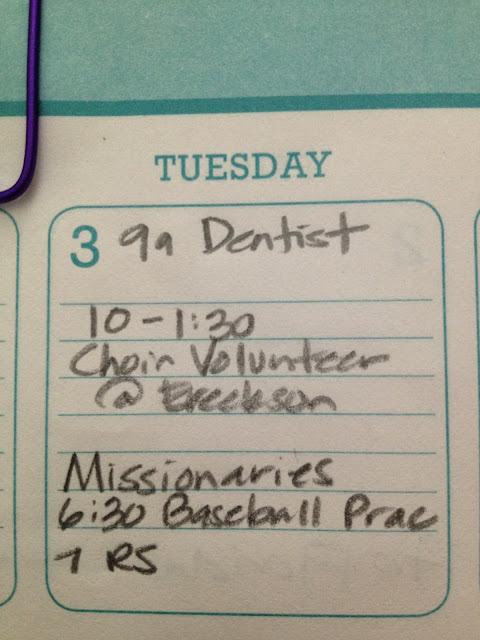 TUESDAY
3 9a Dentist
10-1:30
Choir Volunteer
@ Ereckson
Missionaries
6:30 Baseball Prac
7 RS